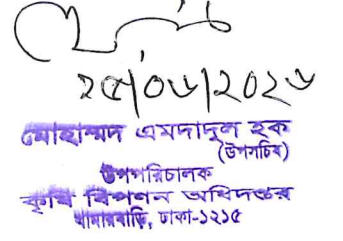 ২৫/০৬/২০২৬
মোহাম্মদ এমদাদুল হক
(উপসচিব)
উপপরিচালক
কৃষি বিপণন অধিদপ্তর
খামারবাড়ি, ঢাকা-১২১৫